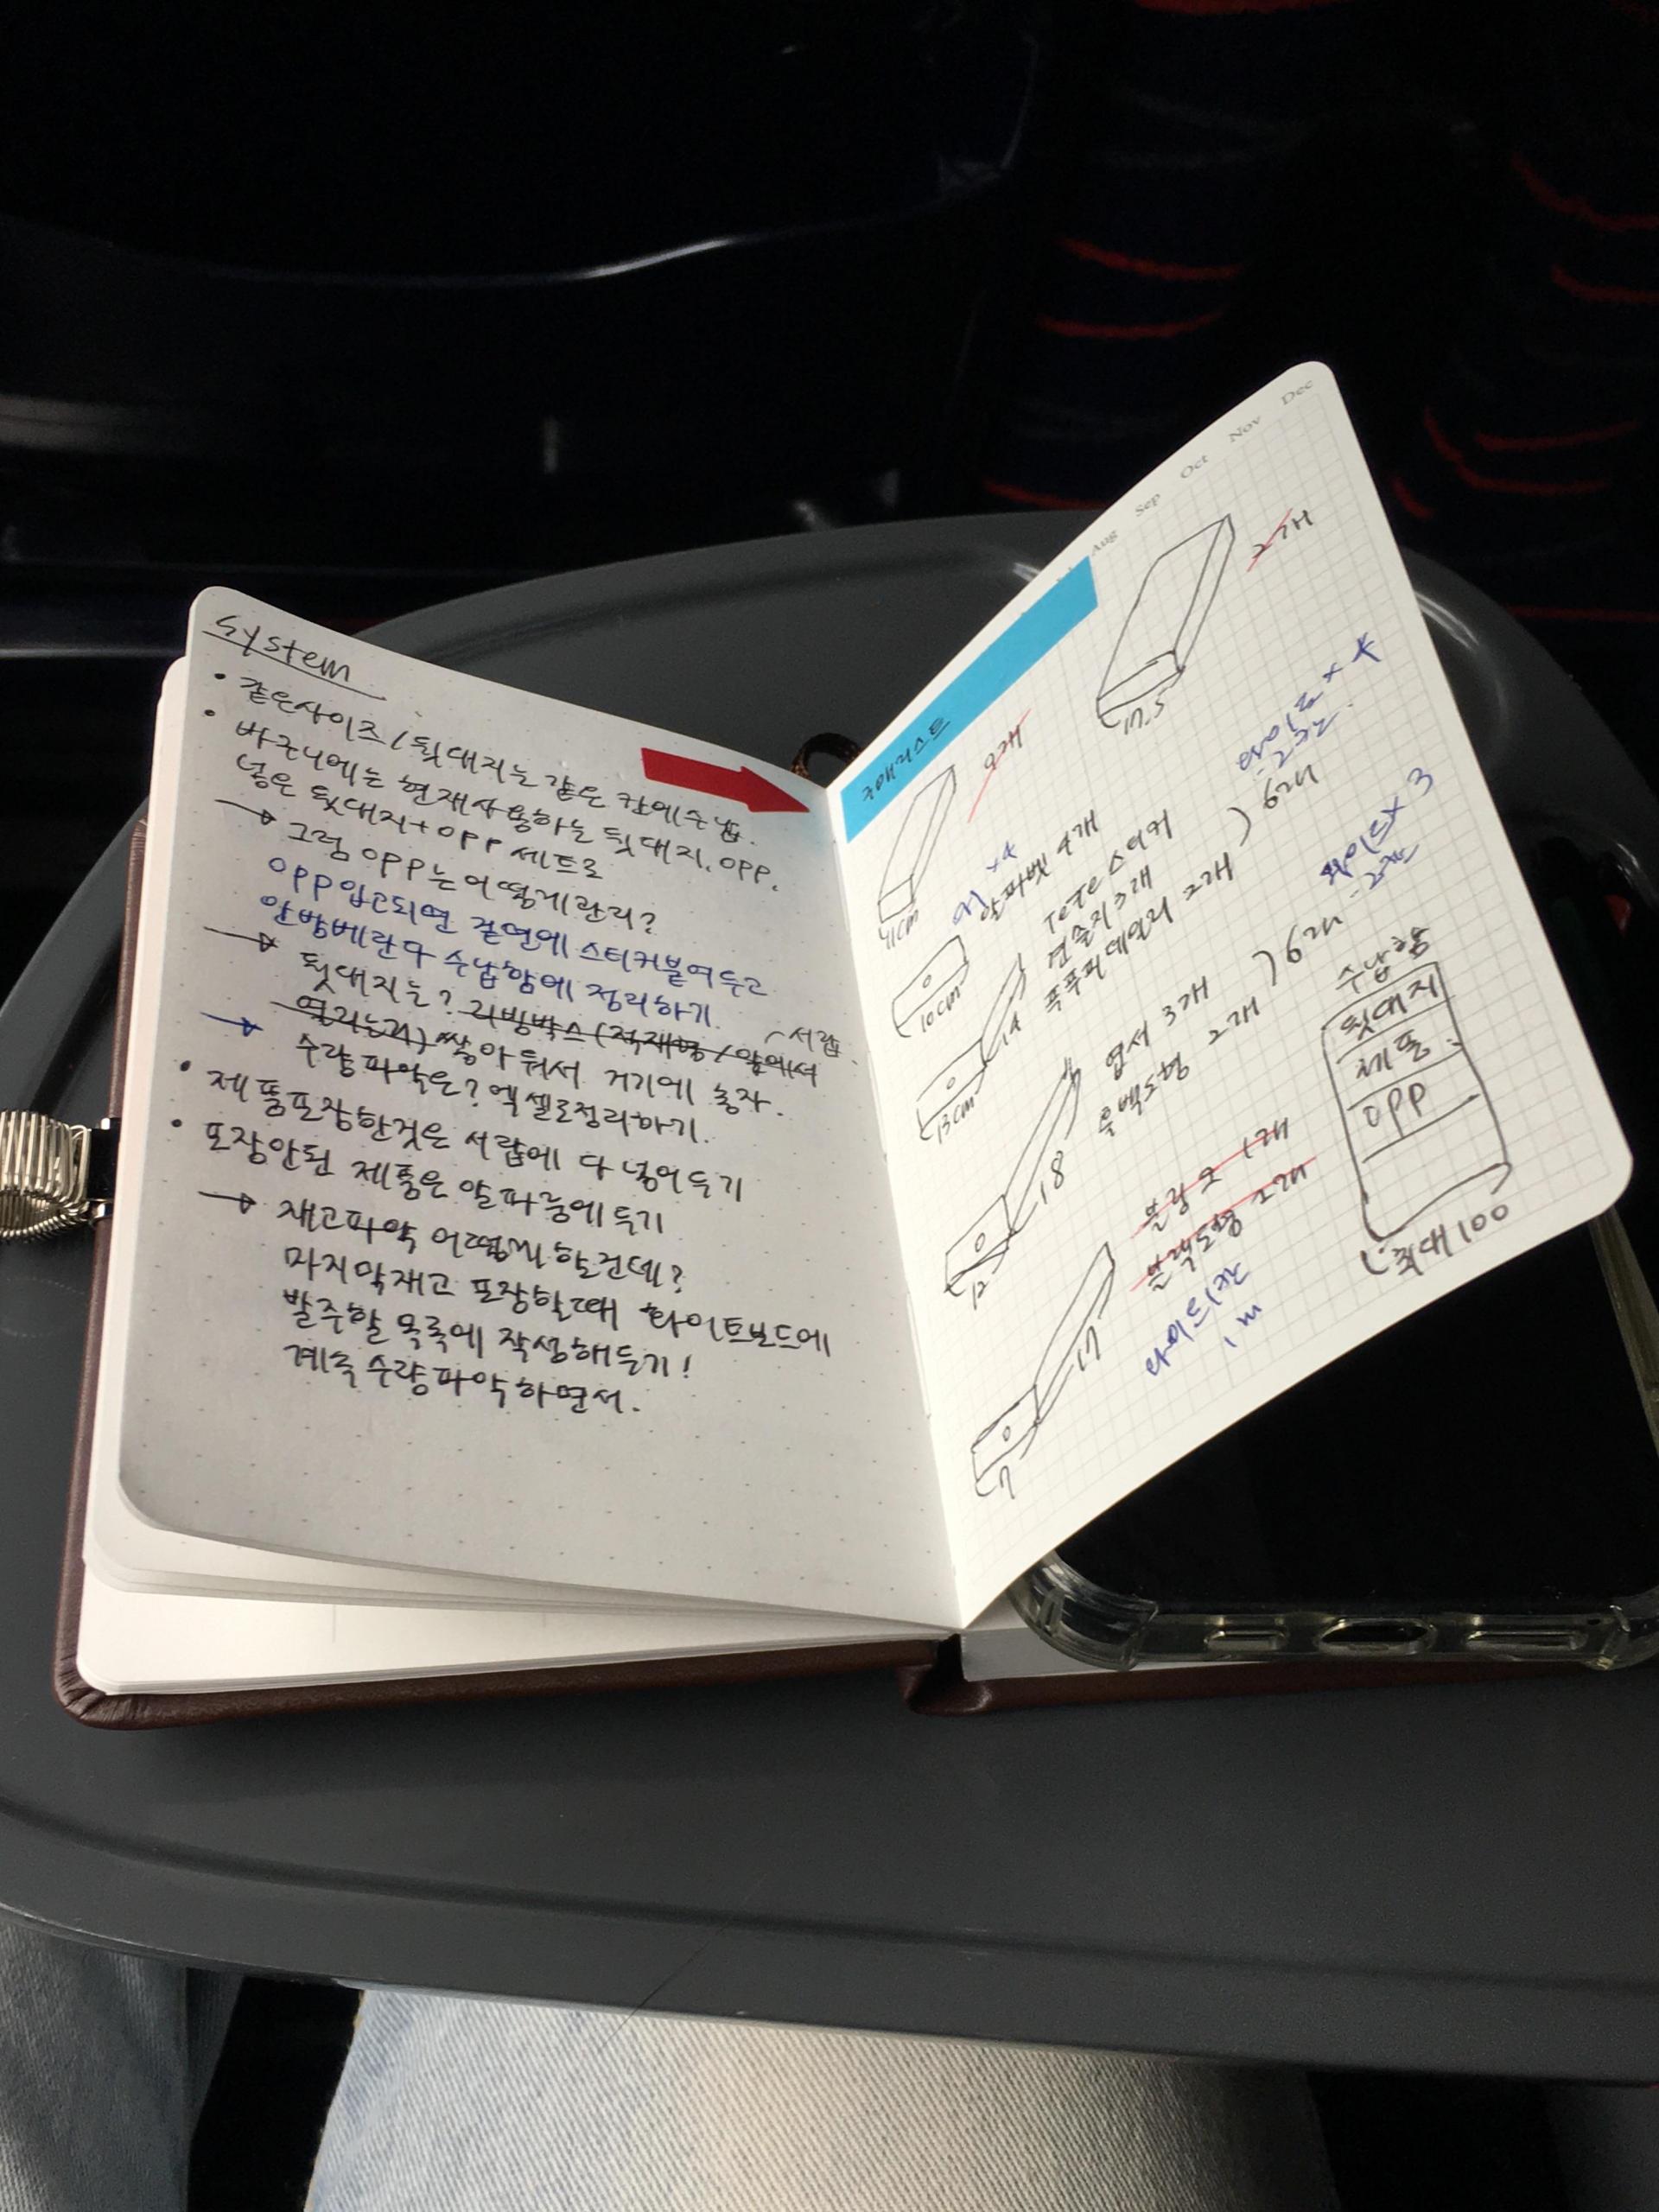 System
• 같은사이즈/뒷대지는 같은 칸에수납.
• 바구니에는 현재사용하는 뒷대지, OPP.
넣은 뒷대지+OPP 세트로
→ 그럼 OPP는어떻게관리?
OPP입고되면 겉면에 스티커붙여두고
안방베란다 수납함에 정리하기.
→ 뒷대지는? 리빙박스(적재형/앞에서
열리는거) 쌓아둬서 거기에 놓자.
서랍
→ 수량파악은? 엑셀로정리하기.
• 제품포장한것은 서랍에 다 넣어두기
• 포장안된 제품은 알파룸에두기
→ 재고파악 어떻게 할건데?
마지막재고 포장할때 화이트보드에
발주할 목록에 작성해두기!
계속 수량파악하면서.
Aug Sep Oct Nov Dec
구매리스트
2개
17.5
2개
11cm
x4
알파벳 4개
10cm
TeTe 스티커
연습지 3개
6개
x 4
13cm
14
엽서 3개
2개
6개
와이드x 3
12
18
수납함
뒷대지
제품
OPP
최대 100
1개
2개
와이드1칸
1m
7
17